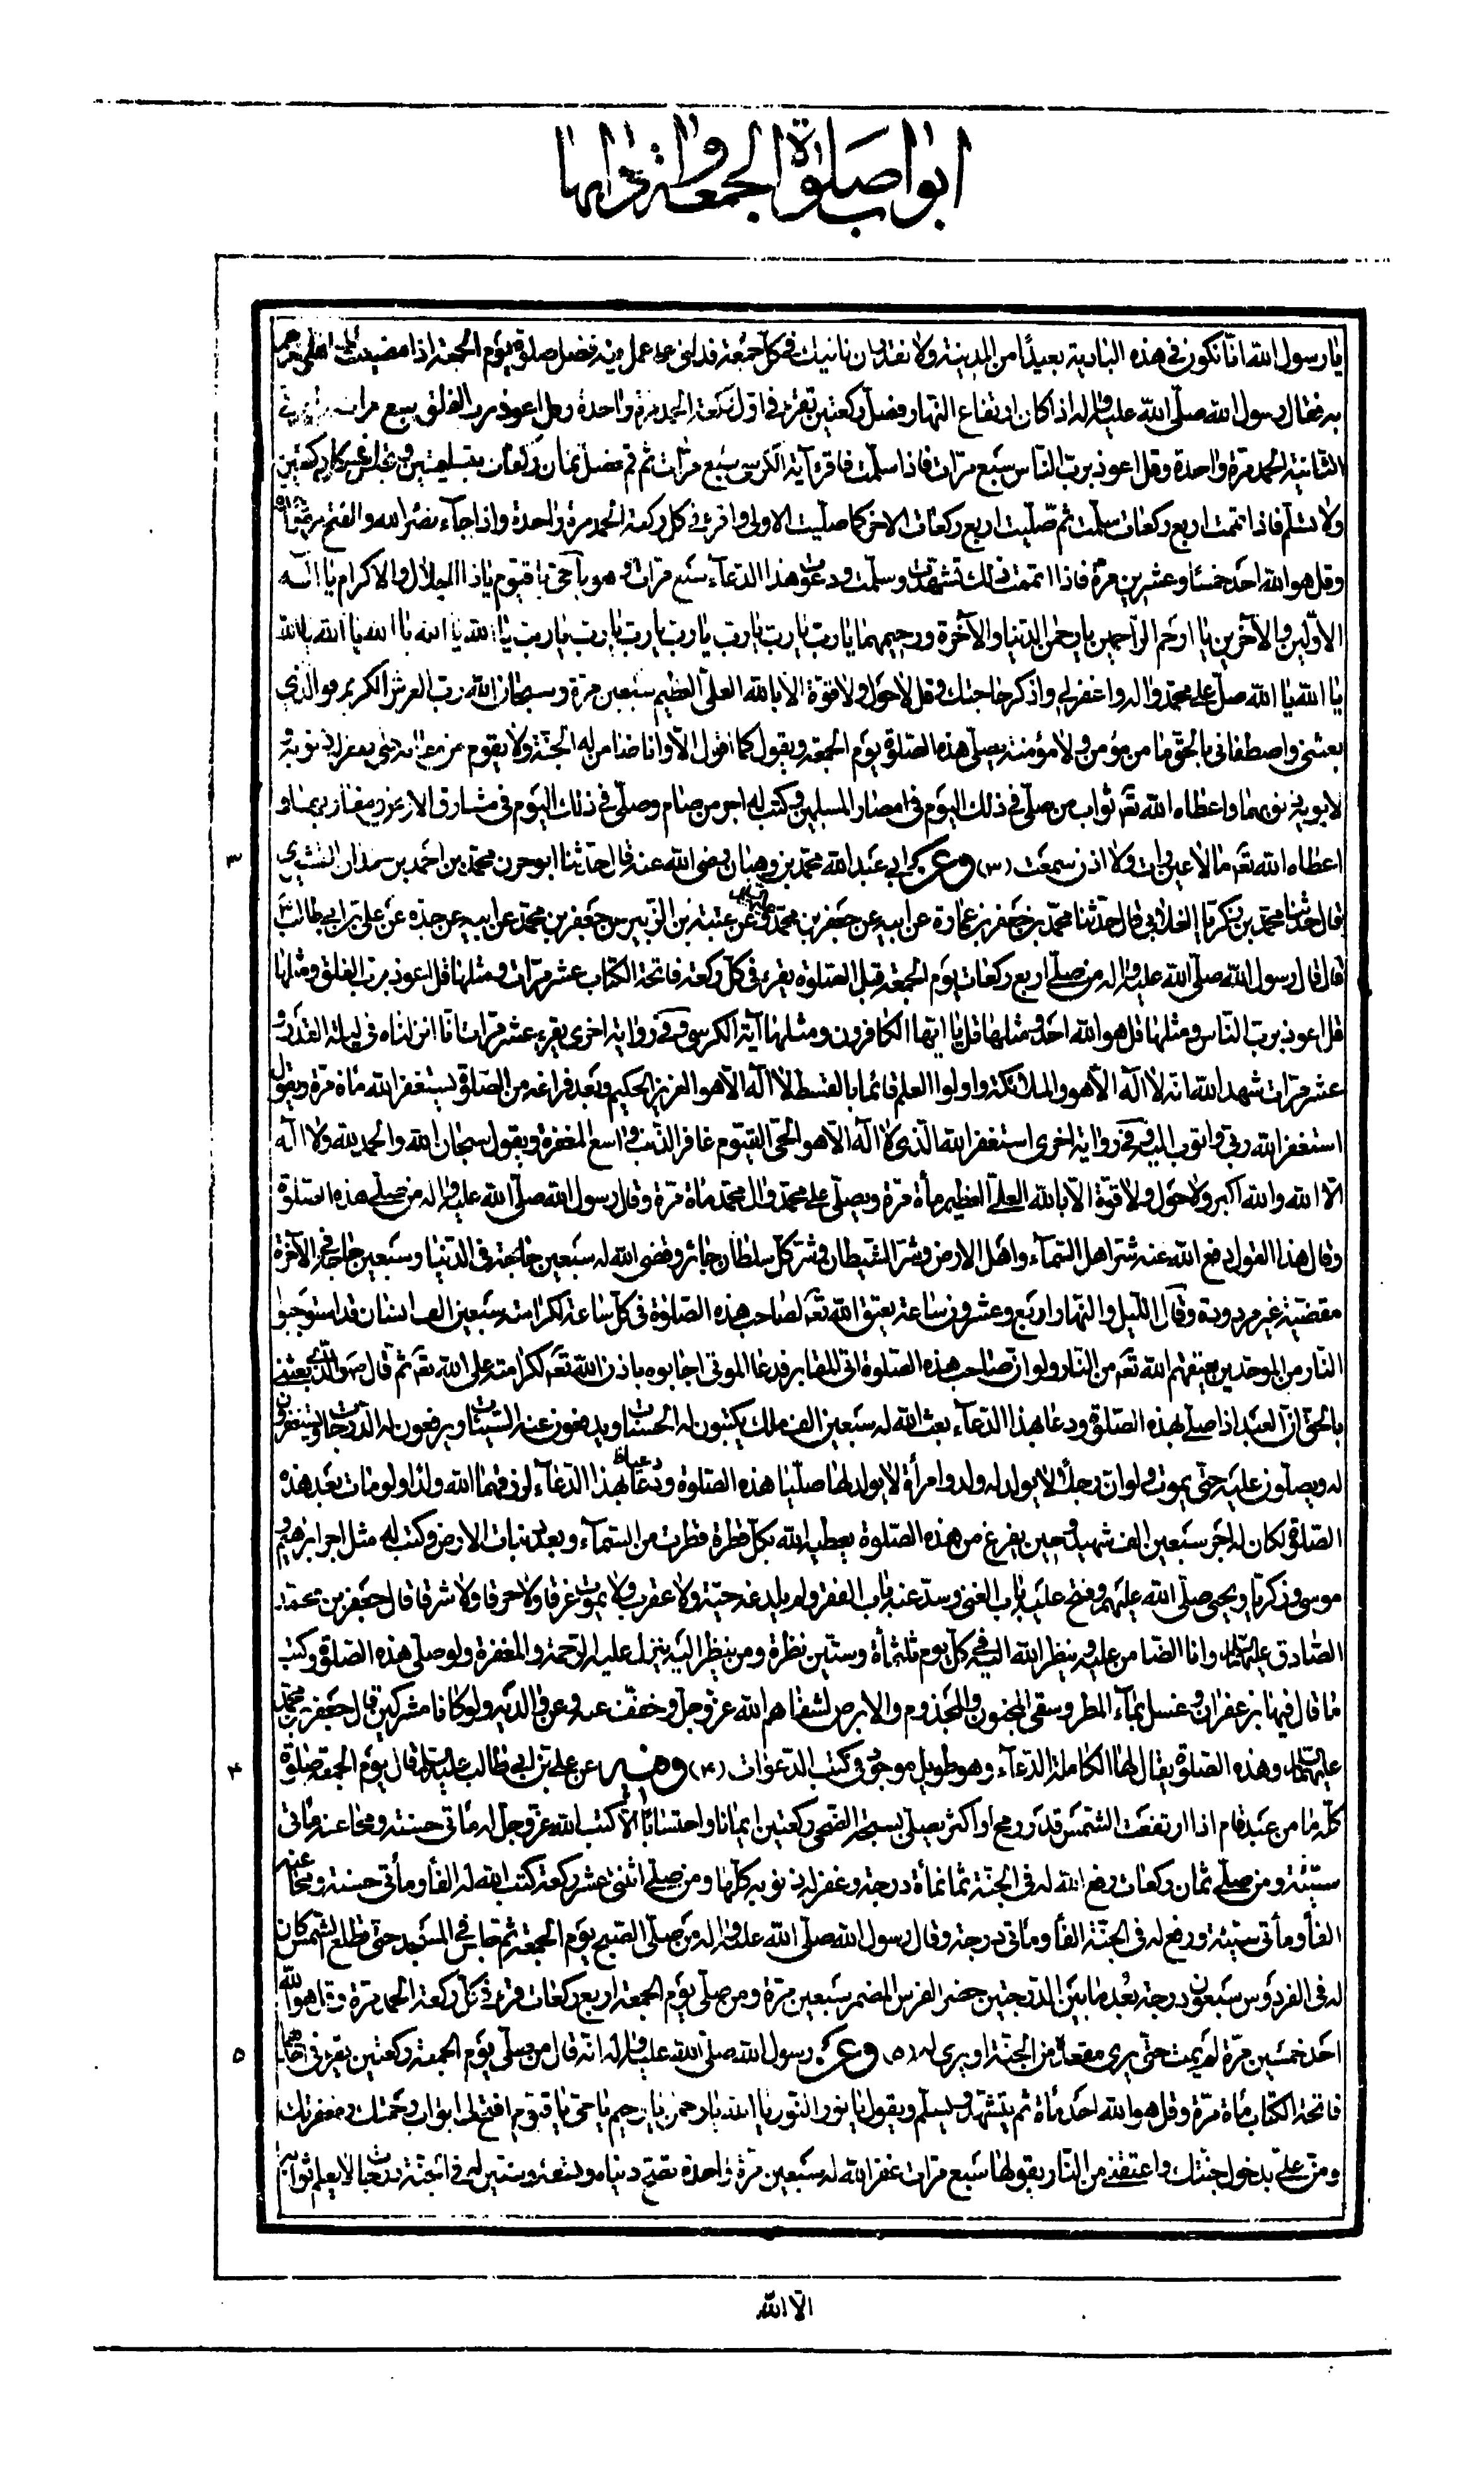 ابواب صلوة الجمعة وادابها
يا رسول الله انا نكون في هذه البادية بعيدًا من المدينة ولا نقدر ان ناتيك في كل جمعة فدلني على عمل فيه فضل صلوة يوم الجمعة اذا مضيت الى اهلي خبرتهم
به فقال رسول الله صلّى الله عليه واله اذا كان ارتفاع النهار فصل ركعتين تقرء في اول ركعة الحمد مرة واحدة وقل اعوذ برب الفلق سبع مرات واقرء في
الثانية الحمد مرة واحدة وقل اعوذ برب الناس سبع مرات فاذا سلمت فاقرء آية الكرسي سبع مرات ثم قم فصل ثمان ركعات بتسليمتين وتجلس في كل ركعتين
ولا تسلم فاذا اتممت اربع ركعات سلمت ثم صليت اربع ركعات الاخر كما صليت الاولى واقرء في كل ركعة الحمد مرة واحدة واذا جاء نصر الله والفتح مرة
وقل هو الله احد خمسًا وعشرين مرة فاذا اتممت ذلك تشهدت وسلمت ودعوت هذا الدعاء سبع مرات وهو يا حي يا قيوم يا ذا الجلال والاكرام يا اله
الاولين والآخرين يا ارحم الراحمين يا رحمن الدنيا والآخرة ورحيمهما يا رب يا رب يا رب يا رب يا رب يا رب يا رب يا الله يا الله يا الله يا الله يا الله
يا الله يا الله صل على محمد واله واغفر لي واذكر حاجتك وقل لا حول ولا قوة الا بالله العلي العظيم سبعين مرة وسبحان الله رب العرش الكريم فو الذي
بعثني واصطفاني بالحق ما من مؤمن ولا مؤمنة يصلي هذه الصلوة يوم الجمعة ويقول كما اقول الا وانا ضامن له الجنة ولا يقوم من مقامه حتى يغفر له ذنوبه و
لابويه ذنوبهما واعطاه الله تعَ ثواب من صلى في ذلك اليوم في امصار المسلمين وكتب له اجر من صام وصلى في ذلك اليوم في مشارق الارض ومغاربها و
اعطاه الله تعَ ما لا عين رات ولا اذن سمعت (٣) وعن ابي عبد الله محمد بن وهبان رضي الله عنه قال حدثنا ابو حزن محمد بن احمد بن حمدان القشيري ٣
قال حدثنا محمد بن زكريا الغلابي قال حدثنا محمد بن جعفر بن عمارة عن ابيه عن جعفر بن محمد وعن عتبة بن الزبير عن جعفر بن محمد عن ابيه عن جده عن علي بن ابي طالب
قال قال رسول الله صلى الله عليه واله من صلى اربع ركعات يوم الجمعة قبل الصلوة يقرء في كل ركعة فاتحة الكتاب عشر مرات ومثلها قل اعوذ برب الفلق ومثلها
قل اعوذ برب الناس ومثلها قل هو الله احد ومثلها قل يا ايها الكافرون ومثلها آية الكرسي وفي رواية اخرى يقرء عشر مرات انا انزلناه في ليلة القدر و
عشر مرات شهد الله انه لا اله الا هو والملائكة واولوا العلم قائما بالقسط لا اله الا هو العزيز الحكيم وبعد فراغه من الصلوة يستغفر الله مائة مرة ويقول
استغفر الله ربي واتوب اليه وفي رواية اخرى استغفر الله الذي لا اله الا هو الحي القيوم غافر الذنب واسع المغفرة ويقول سبحان الله والحمد لله ولا اله
الا الله والله اكبر ولا حول ولا قوة الا بالله العلي العظيم مأة مرة ويصلي على محمد وال محمد مأة مرة وقال رسول الله صلى الله عليه واله من صلى هذه الصلوة
وقال هذا القول دفع الله عنه شر اهل السماء واهل الارض وشر الشيطان وشر كل سلطان جائر وقضى الله له سبعين حاجة في الدنيا وسبعين حاجة في الآخرة
مقضية غير مردودة وقال الليل والنهار اربع وعشرون ساعة يعتق الله تعَ لصاحب هذه الصلوة في كل ساعة لكرامته سبعين الف انسان قد استوجبوا
النار من الموحدين يعتقهم الله تعَ من النار ولو ان صاحب هذه الصلوة اتى المقابر فدعا الموتى اجابوه باذن الله تعَ لكرامته على الله تعَ ثم قال ص والذي بعثني
بالحق ان العبد اذا صلى بهذه الصلوة ودعا بهذا الدعاء بعث الله له سبعين الف ملك يكتبون له الحسنات ويدفعون عنه السيئات ويرفعون له الدرجات ويستغفرون
له ويصلون عليه حتى يموت ولو ان رجلا لا يولد له ولد وامرأة لا يولد لها صليا هذه الصلوة ودعيا بهذا الدعاء لرزقهما الله ولدا ولو مات بعد هذه
الصلوة لكان له اجر سبعين الف شهيد وحين يفرغ من هذه الصلوة يعطيه الله بكل قطرة قطرت من السماء وبعدد نبات الارض وكتب له مثل اجر ابراهيم و
موسى وزكريا ويحيى صلى الله عليهم وفتح عليه باب الغنى وسد عنه باب الفقر ولم يلدغه حية ولا عقرب ولا يموت غرقا ولا حرقا ولا شرقا قال جعفر بن محمد
الصادق عليهما السلام وانا الضامن عليه وينظر الله اليه في كل يوم ثلثمأة وستين نظرة ومن ينظر اليه ينزل عليه الرحمة والمغفرة ولو صلى هذه الصلوة وكتب
ما قال فيها بزعفران وغسل بماء المطر وسقى المجنون والمجذوم والابرص لشفاهم الله عز وجل وخفف عنه وعن والديه ولو كانا مشركين قال جعفر بن محمد
عليهما السلام وهذه الصلوة يقال لها الكاملة الدعاء وهو طويل موجود في كتب الدعوات (٤) ومنه عن علي بن ابي طالب عليه السلام قال يوم الجمعة صلوة ٤
كله ما من عبد قام اذا ارتفعت الشمس قدر رمح او اكثر يصلي بسبحة الضحى ركعتين ايمانا واحتسابا الا كتب الله عز وجل له مأتي حسنة ومحا عنه مأتي
سيئة ومن صلى ثمان ركعات رفع الله له في الجنة ثمانمأة درجة وغفر له ذنوبه كلها ومن صلى اثنتي عشر ركعة كتب الله له الفا ومأتي حسنة ومحا عنه
الفا ومأتي سيئة ورفع له في الجنة الفا ومأتي درجة وقال رسول الله صلى الله عليه واله ومن صلى الصبح يوم الجمعة ثم جلس في المسجد حتى تطلع الشمس كان
له في الفردوس سبعون درجة بعد ما بين الدرجتين حضر الفرس المضمر سبعين مرة ومن صلى يوم الجمعة اربع ركعات قرء في كل ركعة الحمد مرة وقل هو الله
احد خمسين مرة لم يمت حتى يرى مقعده من الجنة او يرى له (٥) وعن رسول الله صلى الله عليه واله انه قال من صلى يوم الجمعة ركعتين يقرء في احدهما ٥
فاتحة الكتاب مأة مرة وقل هو الله احد مأة ثم يتشهد ويسلم ويقول يا نور النور يا الله يا رحمن يا رحيم يا حي يا قيوم افتح لي ابواب رحمتك ومغفرتك
ومن علي بدخول جنتك واعتقني من النار يقولها سبع مرات غفر الله له سبعين مرة واحدة تصلح دنياه وتسعة وستين له في الجنة درجات لا يعلم ثوابه
الا الله